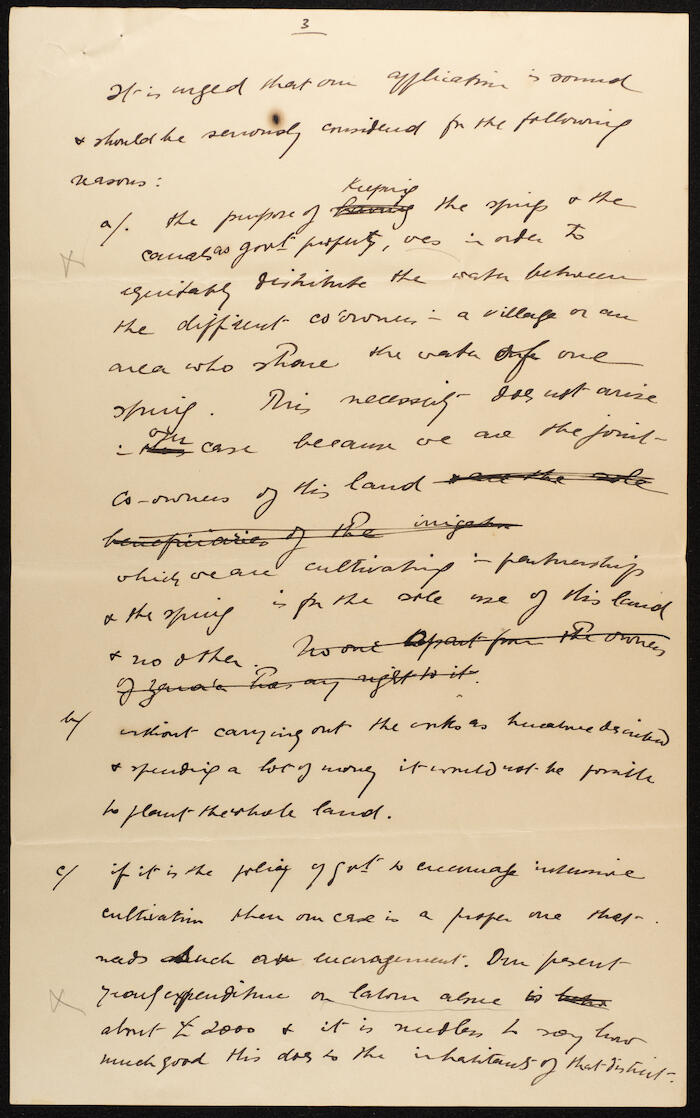 3
It is urged that our application is sound
& should be seriously considered for the following
reasons:
Keeping
a/. the purpose of having the spring & the
canals as govt. property, was in order to
equitably distribute the water between
the different co-owners in a village or an
area who share the water of one
spring. This necessity does not arise
our
in this case because we are the joint
co-owners of this land & are the sole
beneficiaries of the irrigation
which we are cultivating in partnership
& the spring is for the sole use of this land
& no other. No one apart from the owners
of has any right to it.
b/ without carrying out the works as described
& spending a lot of money it would not be possible
to plant the whole land.
c/ if it is the policy of govt. to encourage intensive
cultivation then our case is a proper one that
needs such encouragement. Our present
expenditure on labour alone is
about £ 2000 & it is needless to say how
much good this does to the inhabitants of that district.